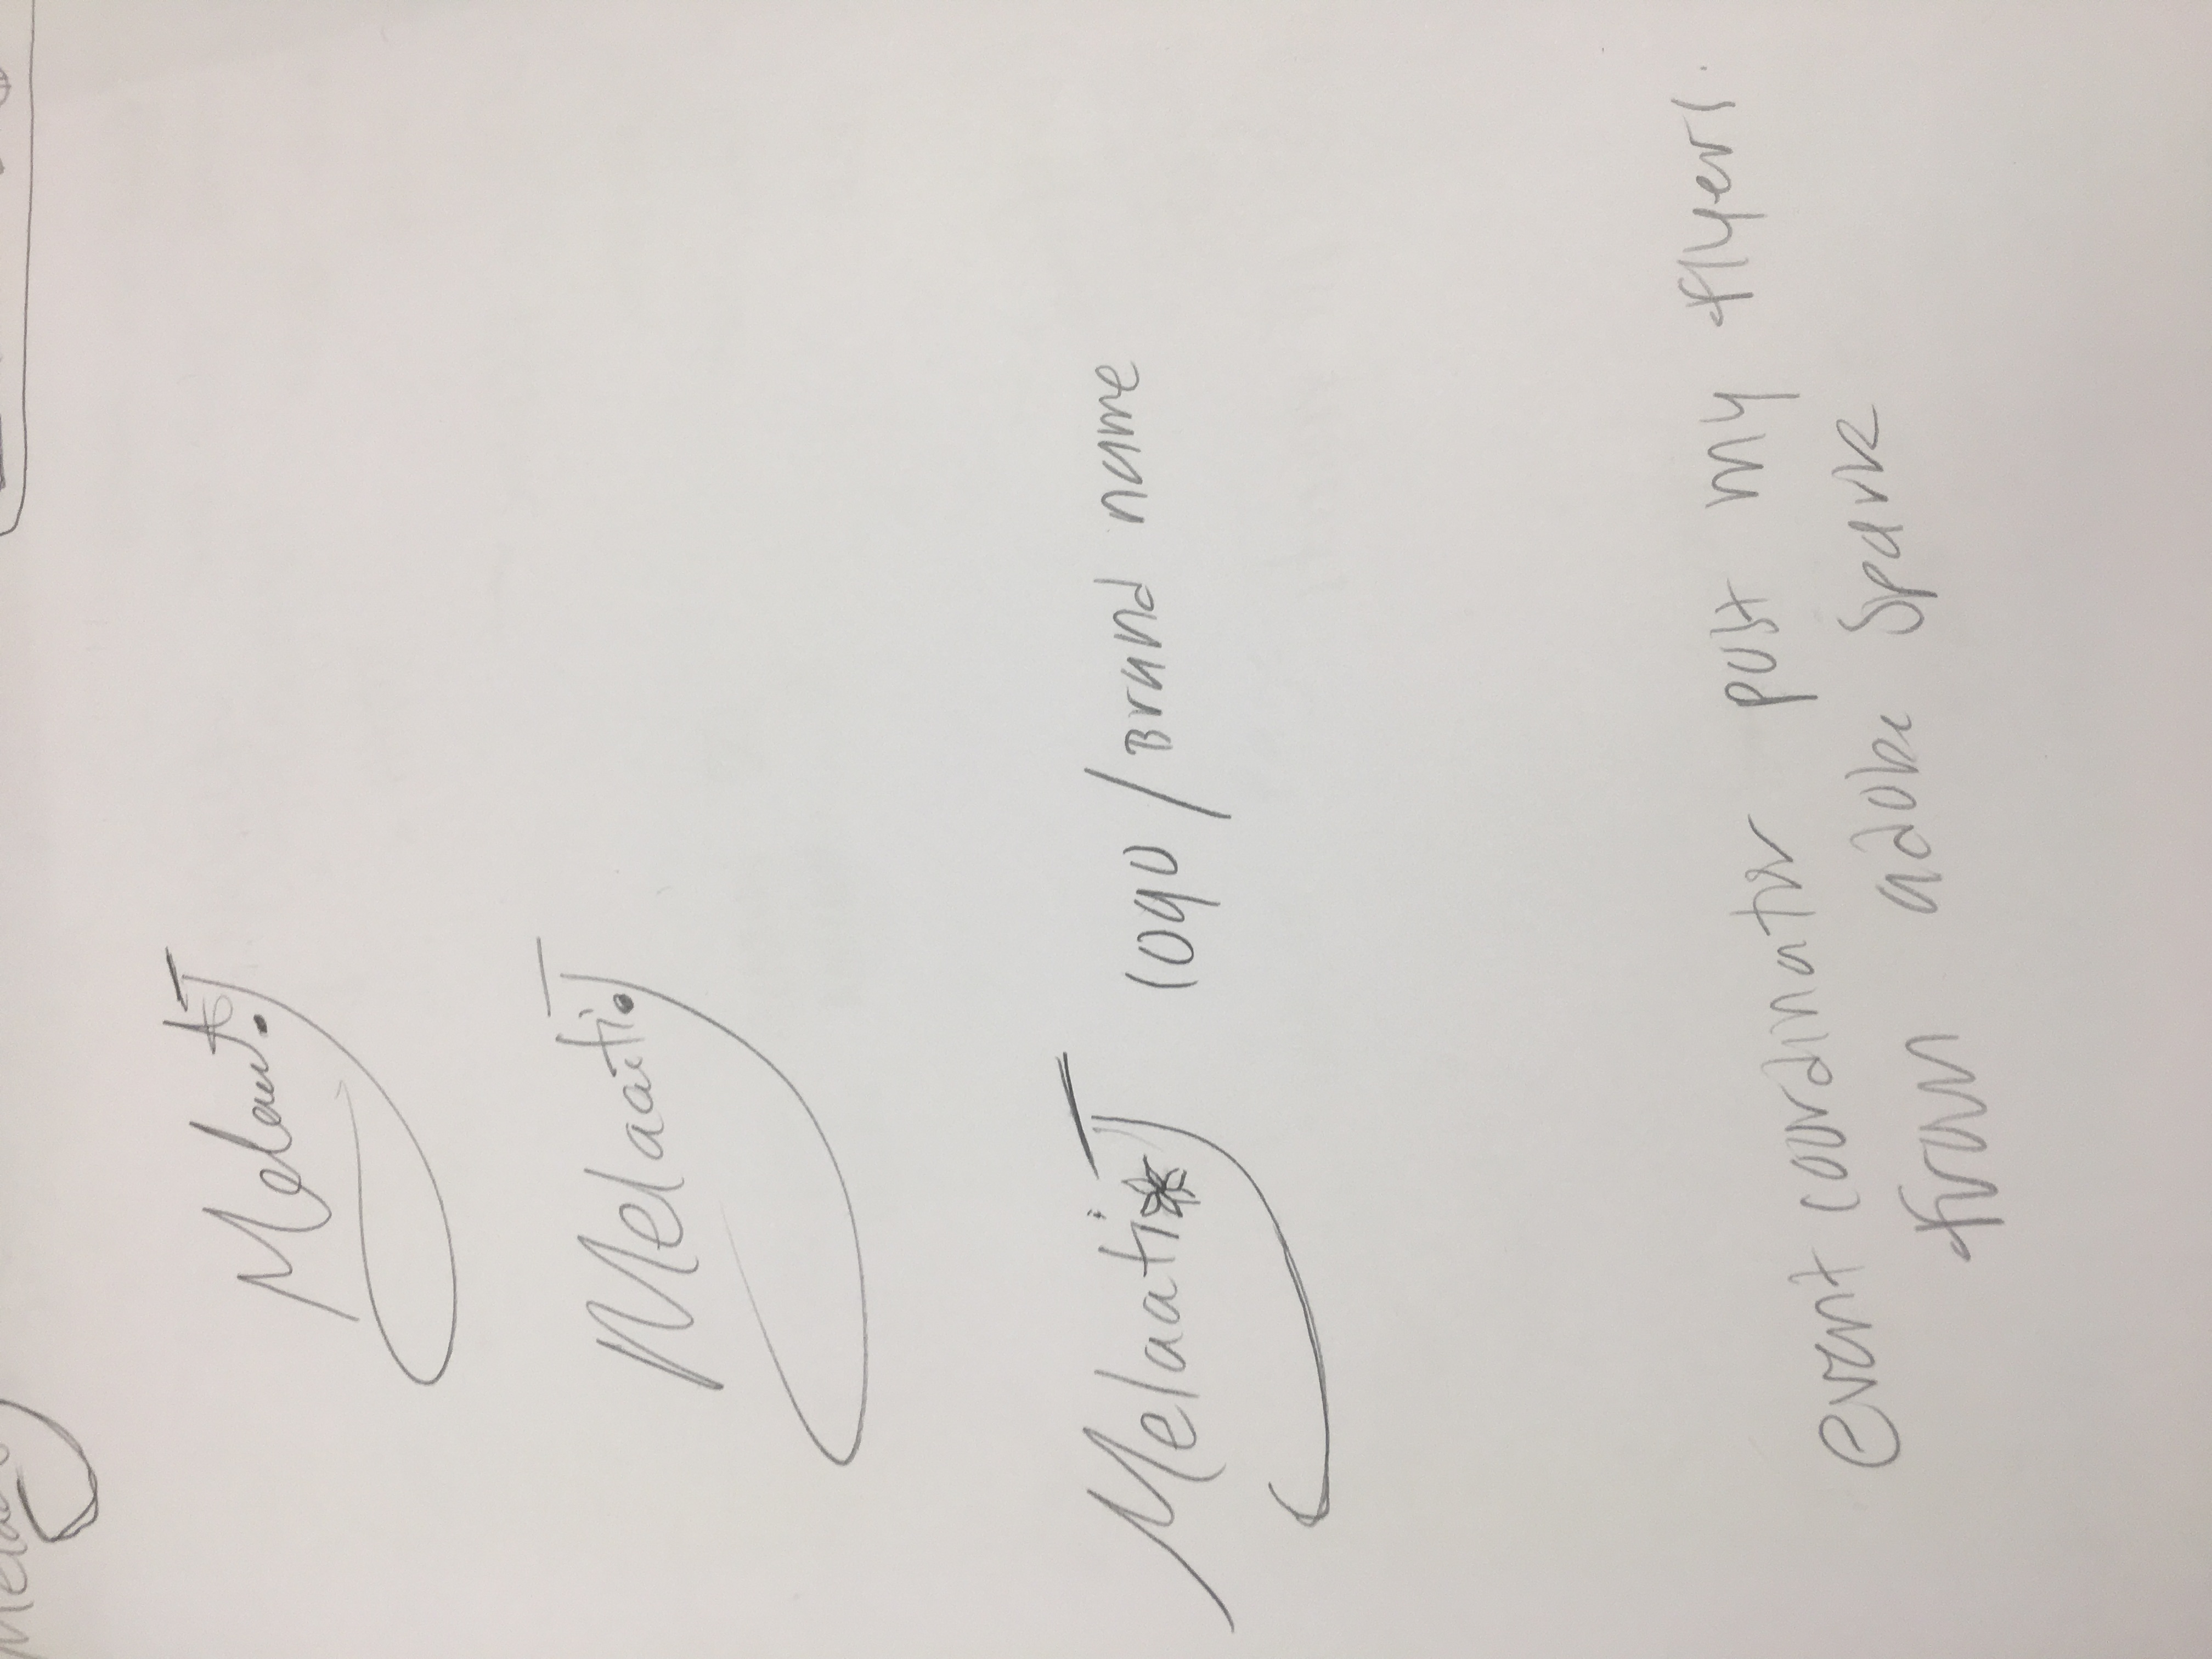 Melaati.J
Melaati.J
Melaati*J logo / Brand name
event coordinator post my flyers.
from adobe Spark